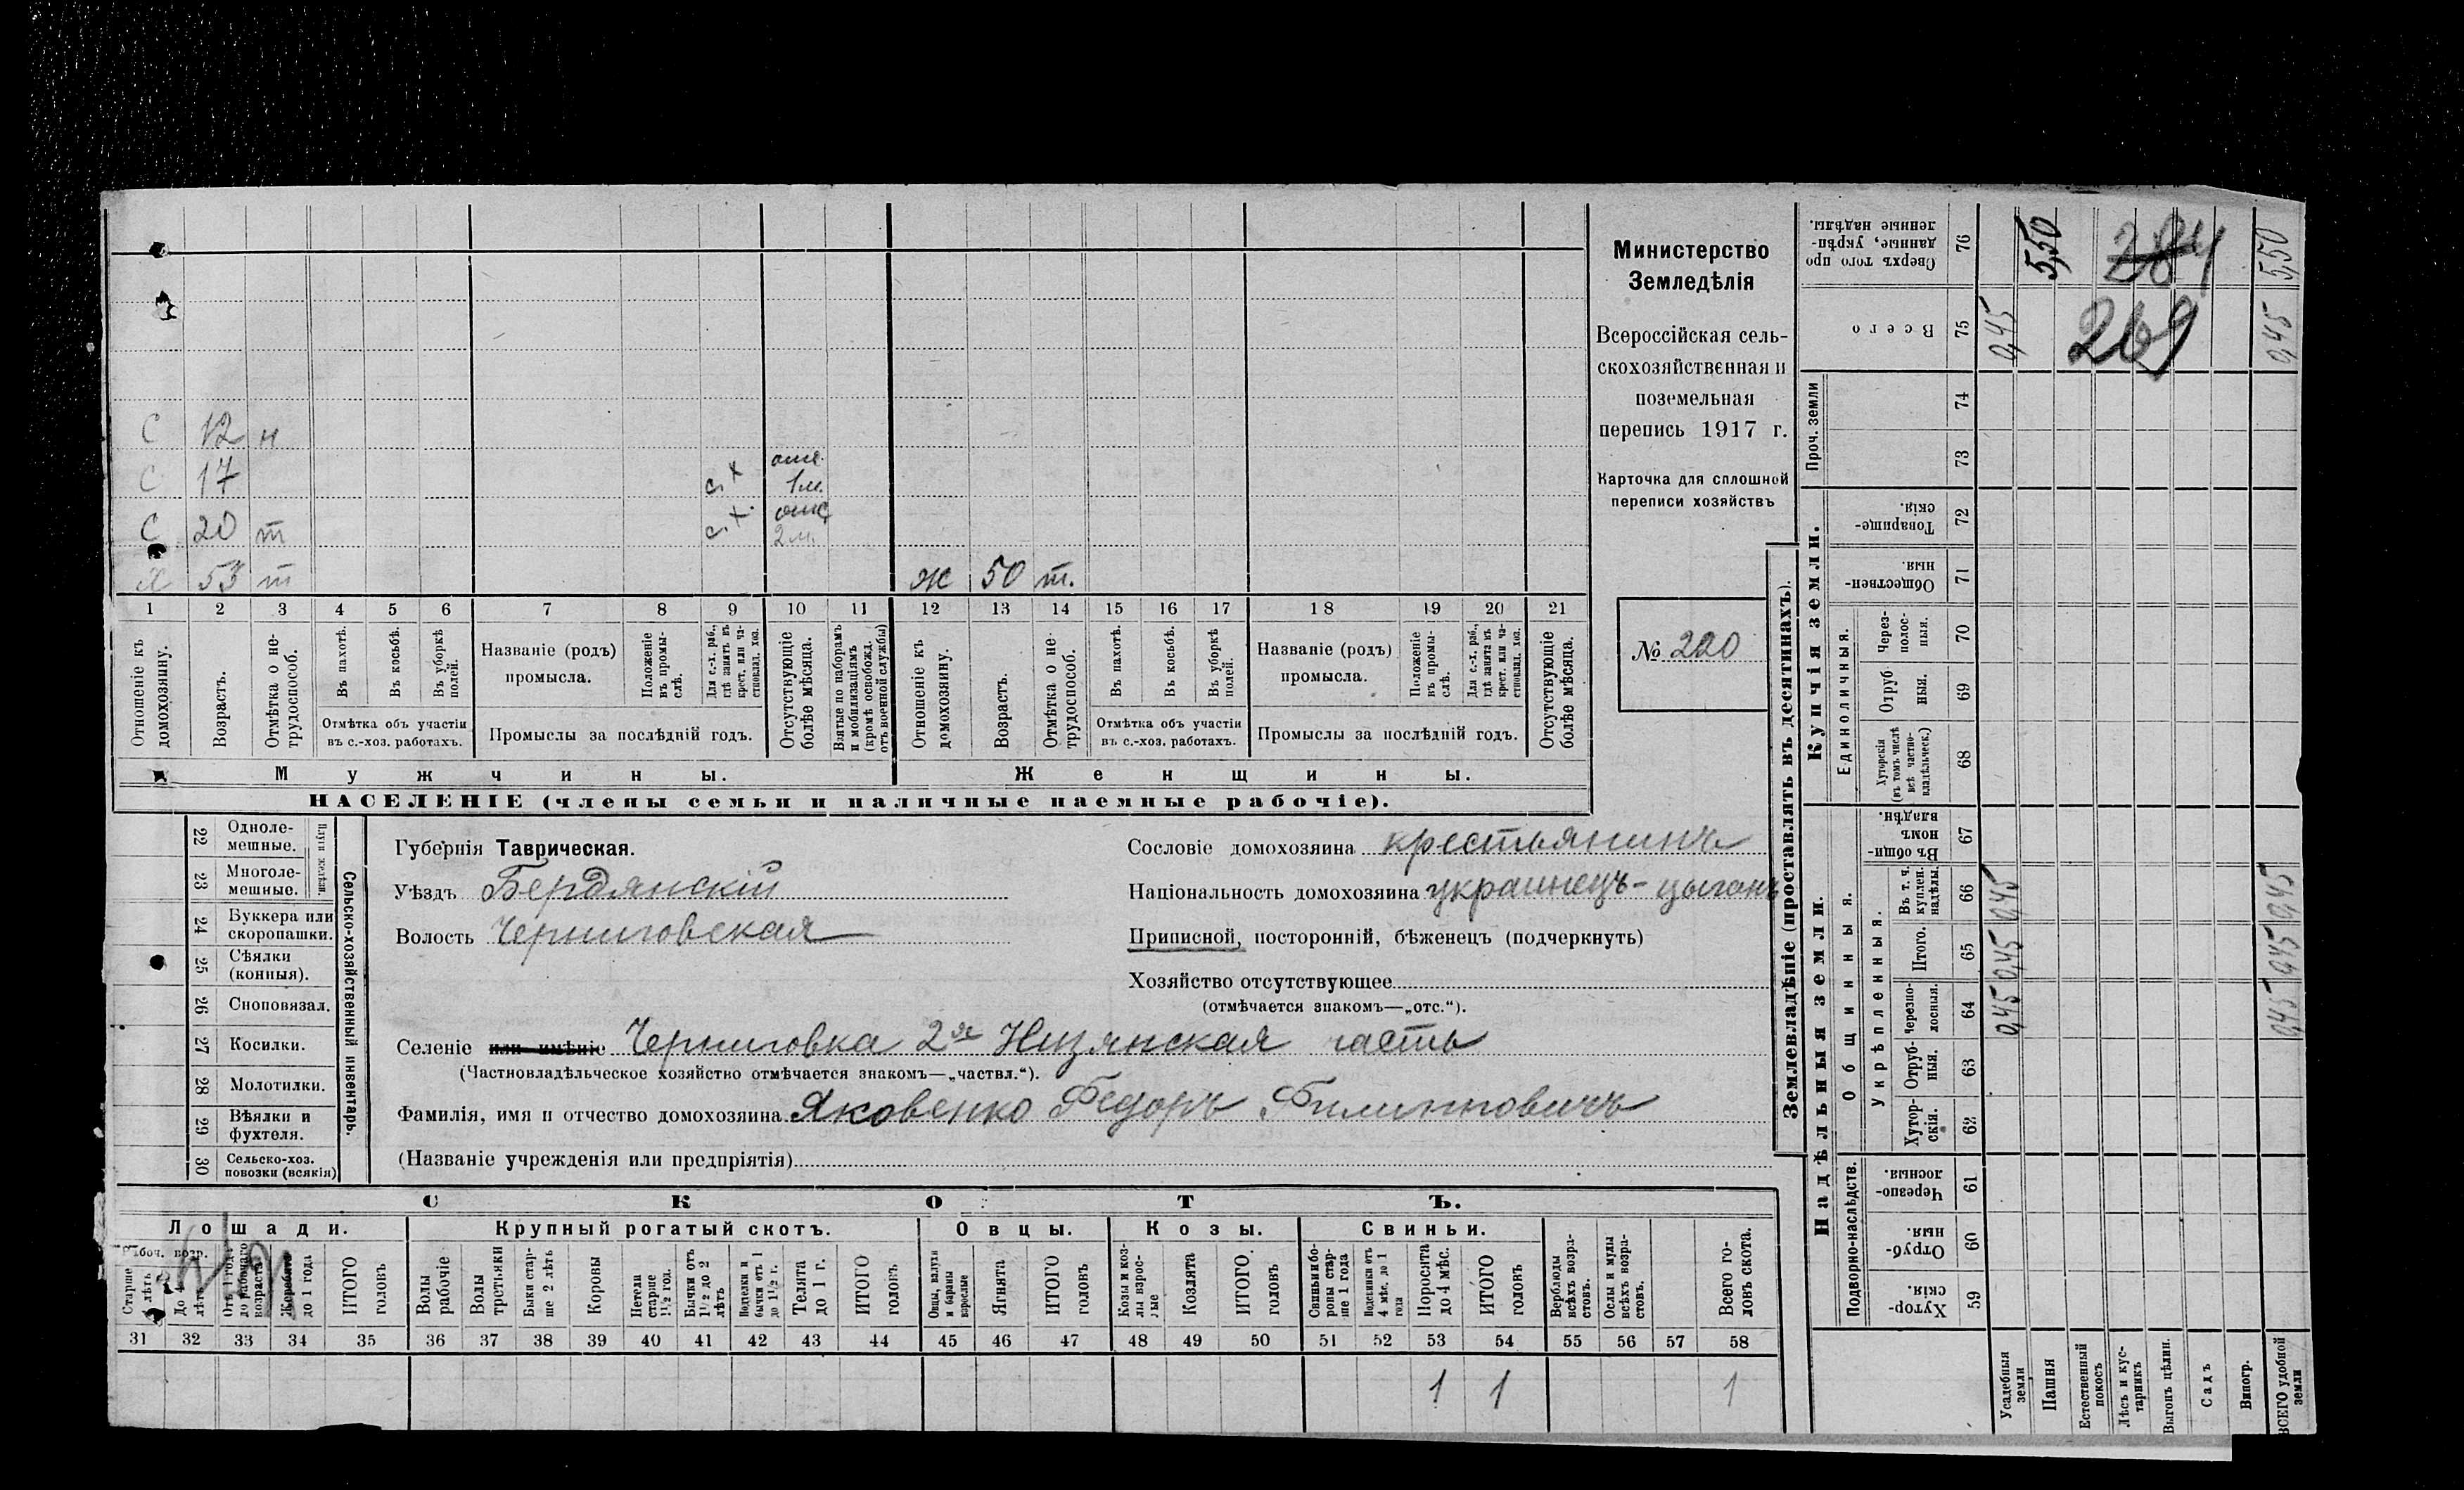 С 12 н
С 17 с.х отс. 1 м.
С 20 т с.х. отс. 2 м.
Х 53 т ж 50 т.
1 2 3 4 5 6 7 8 9 10 11 12 13 14 15 16 17 18 19 20 21
Отношеніе къ домохозяину.
Возрастъ.
Отмѣтка о нетрудоспособ.
Въ пахотѣ.
Въ косьбѣ.
Въ уборкѣ полей.
Отмѣтка объ участіи
въ с.-хоз. работахъ.
Названіе (родъ)
промысла.
Положеніе въ промыслѣ.
Для с.-х. раб., гдѣ занятъ въ крест. или частновлад. хоз.
Промыслы за послѣдній годъ.
Отсутствующіе болѣе мѣсяца.
Взятые по наборамъ и мобилизаціямъ (кромѣ освобожд. отъ военной службы)
Отношеніе къ домохозяину.
Возрастъ.
Отмѣтка о нетрудоспособ.
Въ пахотѣ.
Въ косьбѣ.
Въ уборкѣ полей.
Отмѣтка объ участіи
въ с.-хоз. работахъ.
Названіе (родъ)
промысла.
Положеніе въ промыслѣ.
Для с.-х. раб., гдѣ занята въ крест. или частновлад. хоз.
Промыслы за послѣдній годъ.
Отсутствующіе болѣе мѣсяца.
Мужчины. Женщины.
НАСЕЛЕНІЕ (члены семьи и наличные наемные рабочіе).
Министерство
Земледѣлія
Всероссійская сель-
скохозяйственная и
поземельная
перепись 1917 г.
Карточка для сплошной
переписи хозяйствъ
№ 220
Сельско-хозяйственный инвентарь.
22 Однолемешные.
23 Многолемешные.
24 Буккера или скоропашки.
25 Сѣялки (конныя).
26 Сноповязал.
27 Косилки.
28 Молотилки.
29 Вѣялки и фухтеля.
30 Сельско-хоз. повозки (всякія)
Губернія Таврическая.
Уѣздъ Бердянскій
Волость Черниговская
Сословіе домохозяина крестьянинъ
Національность домохозяина украинецъ-цыганъ
Приписной, посторонній, бѣженецъ (подчеркнуть)
Хозяйство отсутствующее
(отмѣчается знакомъ—„отс.“).
Селеніе или имѣніе Черниговка 2ая Низянская часть
(Частновладѣльческое хозяйство отмѣчается знакомъ—„частвл.“).
Фамилія, имя и отчество домохозяина Яковенко Федоръ Филипповичъ
(Названіе учрежденія или предпріятія)
СКОТЪ.
Лошади. Крупный рогатый скотъ. Овцы. Козы. Свиньи.
Рабоч. возр.
Старше 4 лѣтъ
До 4 лѣтъ
Отъ 1 года до рабочаго возраста
Жеребята до 1 года
ИТОГО головъ
Волы рабочіе
Волы третьяки
Быки старше 2 лѣтъ
Коровы
Нетели старше 1½ год.
Бычки отъ 1½ до 2 лѣтъ
бычки отъ 1 до 1½ г.
Телята до 1 г.
ИТОГО головъ
Овцы, валухи и бараны взрослые
Ягнята
ИТОГО головъ
Козы и козлы взрослые
Козлята
ИТОГО головъ
Свиньи и боровы старше 1 года
Подсвинки отъ 4 мѣс. до 1 года
Поросята до 4 мѣс.
ИТОГО головъ
Верблюды всѣхъ возрастовъ.
Ослы и мулы всѣхъ возрастовъ.
Всего головъ скота.
31 32 33 34 35 36 37 38 39 40 41 42 43 44 45 46 47 48 49 50 51 52 53 54 55 56 57 58
1 1 1
Землевладѣніе (проставлять въ десятинахъ).
Надѣльныя земли. Купчія земли. Проч. земли
Подворно-наслѣдств.
Общинныя.
Укрѣпленныя.
Единоличныя.
Сверхъ того проданные, укрѣпленные надѣлы. 76 5,50 284 5,50
Всего 75 0,45 269 0,45
74
73
Товарищескія. 72
Общественныя. 71
Черезполосныя. 70
Отрубныя. 69
Хуторскія (въ томъ числѣ всѣ частновладѣльческ.) 68
Въ общинномъ владѣн. 67
Въ т. ч. куплен. надѣлы. 66 0,45 0,45
Итого. 65 0,45 0,45
Черезполосныя. 64 0,45 0,45
Отрубныя. 63
Хуторскія. 62
Черезполосныя. 61
Отрубныя. 60
Хуторскія. 59
Усадебныя земли
Пашня
Естественный покосъ
Лѣсъ и кустарникъ
Выгонъ цѣлин.
Садъ
Виногр.
ВСЕГО удобной земли